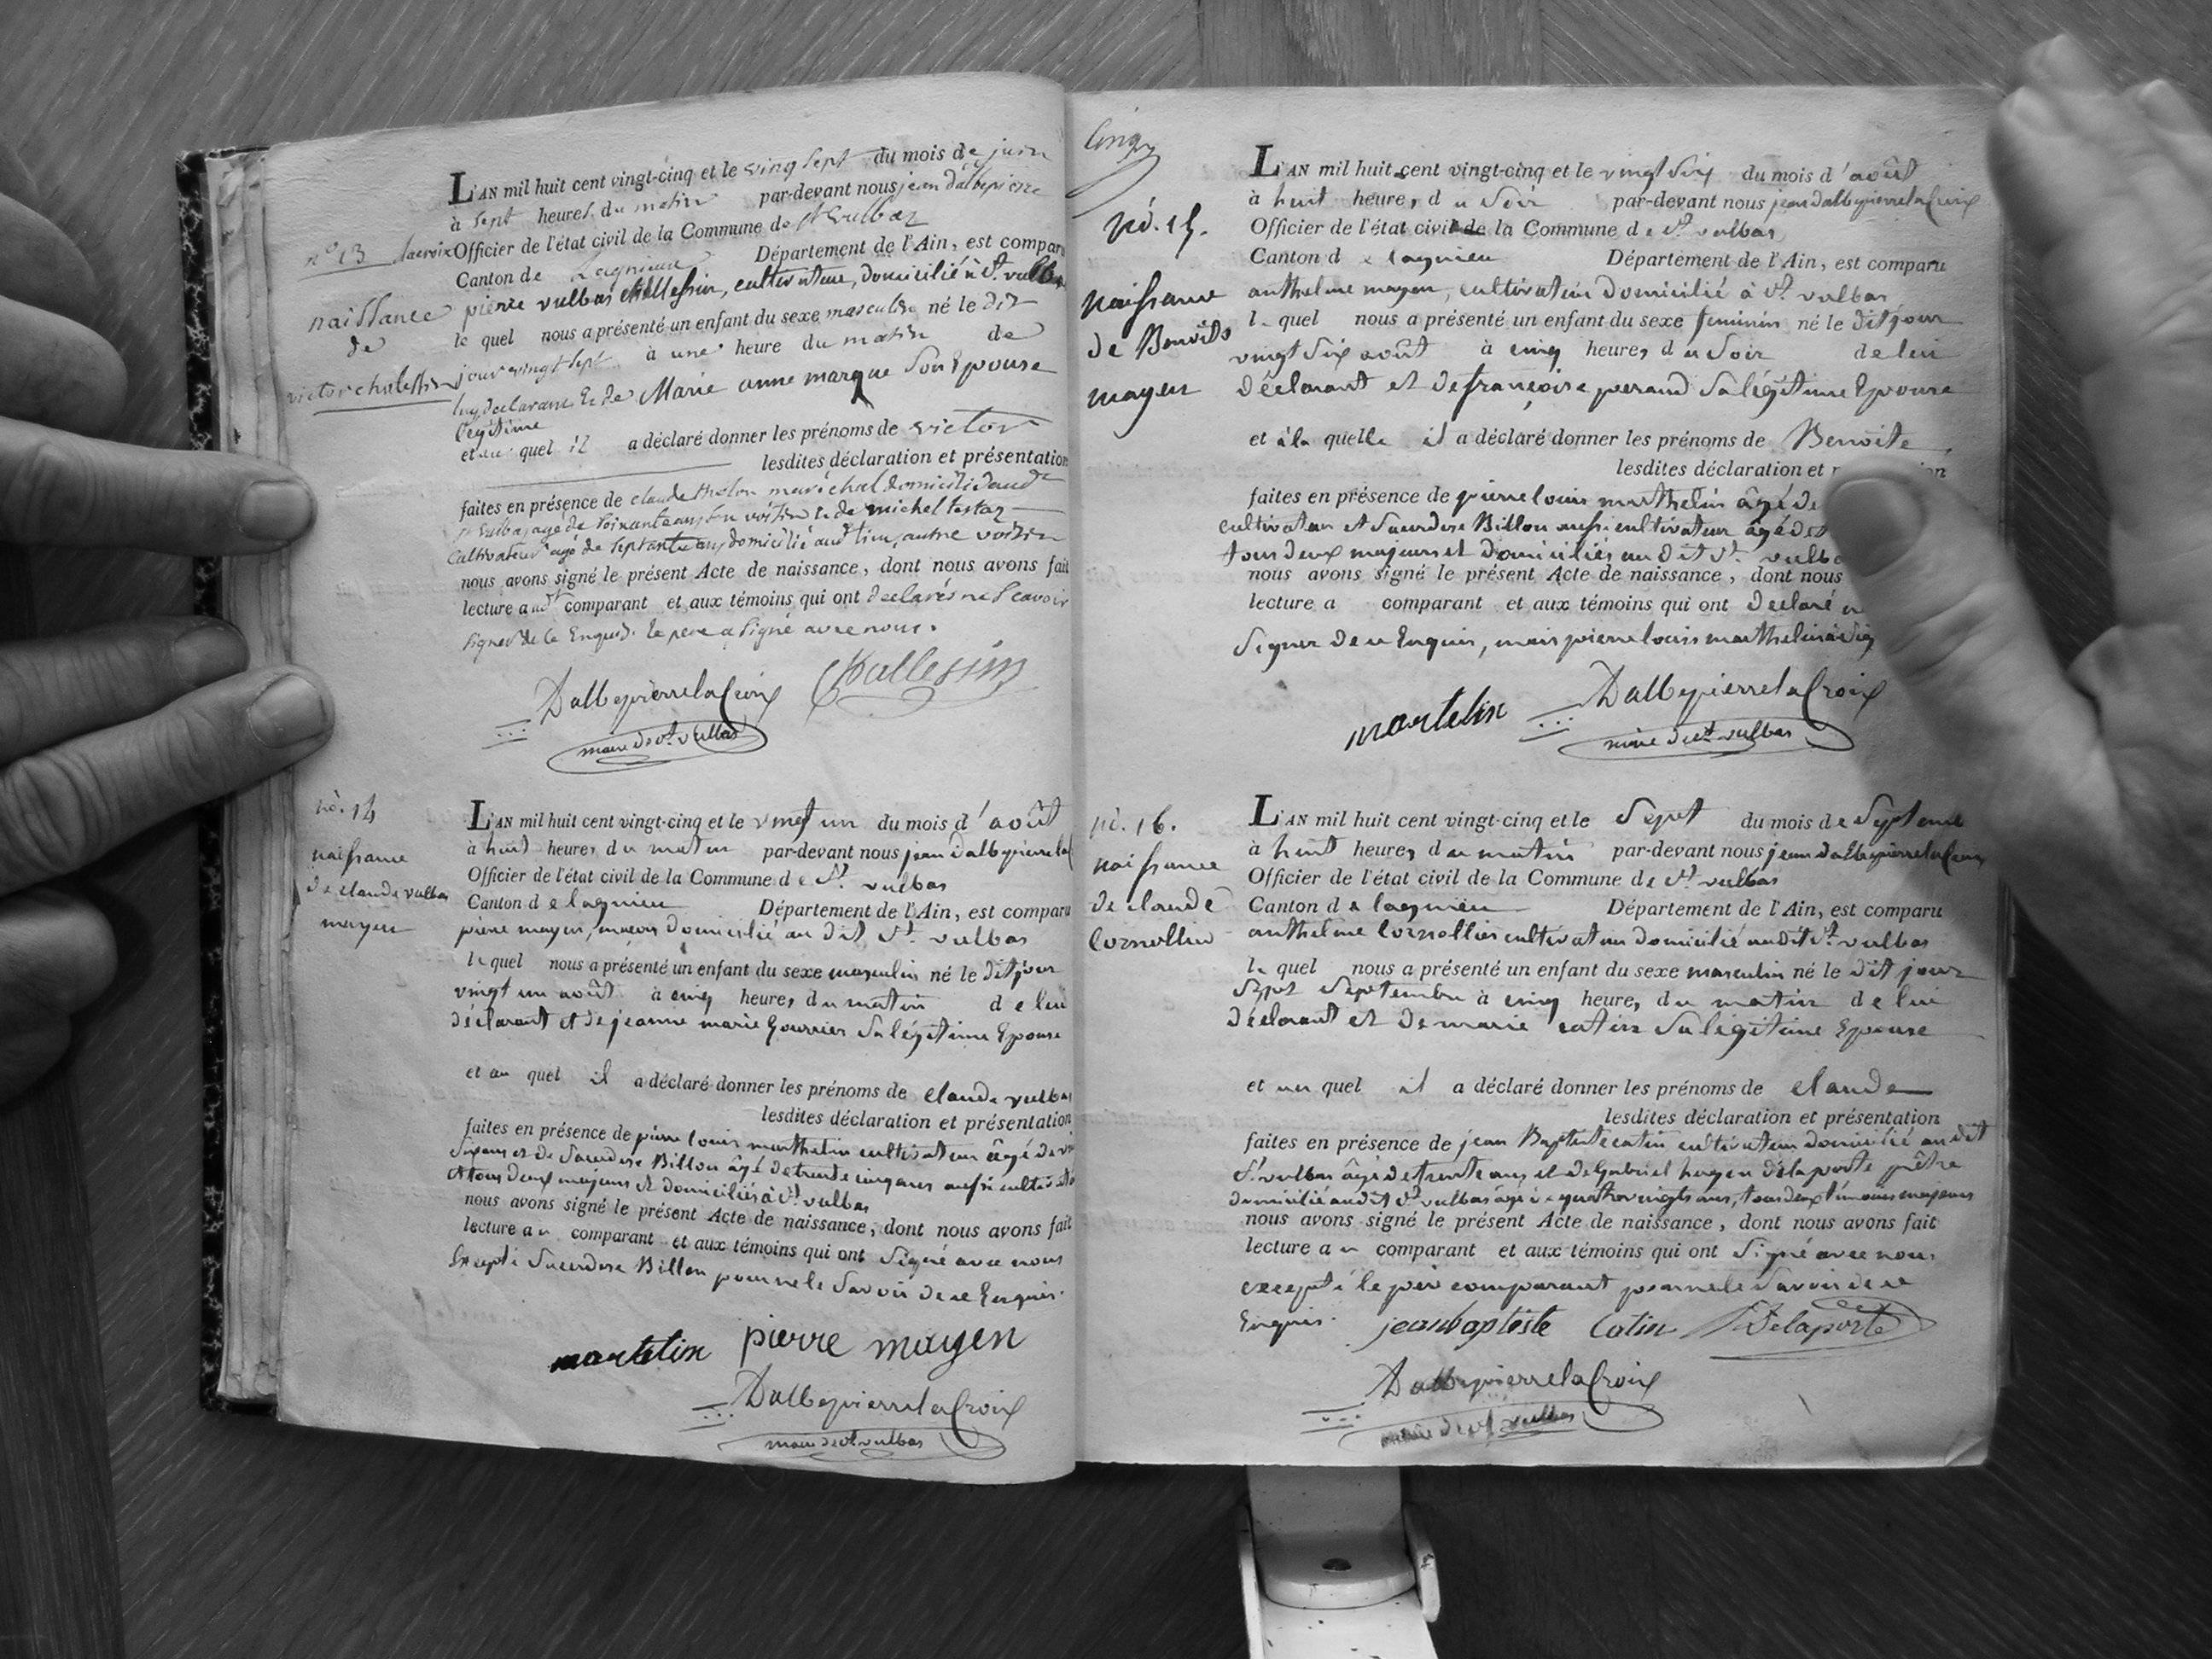 n° 13
naissance
de
victor challessin
L'AN mil huit cent vingt-cinq et le vingt sept du mois de juin
à sept heures du matin par-devant nous jean dalbepierre
lacroix Officier de l'état civil de la Commune de st vulbaz
Canton de Lagnieu Département de l'Ain, est comparu
pierre vulbas challessin, cultivateur, domicilié à st. vulbas
le quel nous a présenté un enfant du sexe masculin né le dit
jour vingt sept à une heure du matin de
luy declarant et de Marie anne marque son Epouse
legitime
et au quel il a déclaré donner les prénoms de victor
lesdites déclaration et présentation
faites en présence de claude tholon maréchal domicilié audt
st vulbas agé de soixante ans son voisin et de michel testaz
cultivateur agé de septante ans domicilié audt lieu, autre voisin
nous avons signé le présent Acte de naissance, dont nous avons fait
lecture audt comparant et aux témoins qui ont declarés ne scavoir
signer de ce Enquis. le pere a signé avec nous.
Dalbepierrelacroix Challessin
maire de st. vulbas
nò. 14
naissance
de claude vulbas
mayen
L'AN mil huit cent vingt-cinq et le vingt un du mois d'août
à huit heures du matin par-devant nous jean dalbepierrela
Officier de l'état civil de la Commune de St. vulbas
Canton de lagnieu Département de l'Ain, est comparu
pierre mayen, maçon domicilié au dit St. vulbas
le quel nous a présenté un enfant du sexe masculin né le dit jour
vingt un août à cinq heures du matin de lui
déclarant et de jeanne marie Gourrier sa légitime Epouse
et au quel il a déclaré donner les prénoms de claude vulbas
lesdites déclaration et présentation
faites en présence de pierre louis marthelin cultivateur âgé de
six ans et de Sacerdose Billon âgé de trente cinq ans aussi
et tous deux majeurs et domiciliés à St. vulbas
nous avons signé le présent Acte de naissance, dont nous avons fait
lecture au comparant et aux témoins qui ont signé avec nous
Excepté Sacerdose Billon pour ne le savoir de ce Enquis.
martelin pierre mayen
Dalbepierrelacroix
maire de st. vulbas
cinq
nò. 15.
naissance
de Benoite
mayen
L'AN mil huit cent vingt-cinq et le vingt six du mois d'août
à huit heures du soir par-devant nous jean dalbepierrelacroix
Officier de l'état civil de la Commune de St. vulbas
Canton de lagnieu Département de l'Ain, est comparu
anthelme mayen, cultivateur domicilié à St. vulbas
le quel nous a présenté un enfant du sexe feminin né le dit jour
vingt six août à cinq heures du soir de lui
déclarant et de françoise perand sa légitime Epouse
et à la quelle il a déclaré donner les prénoms de Benoite
lesdites déclaration et
faites en présence de pierre louis marthelin âgé de
cultivateur et Sacerdose Billon aussi cultivateur âgé de
tous deux majeurs et domiciliés au dit St. vulbas
nous avons signé le présent Acte de naissance, dont nous
lecture a comparant et aux témoins qui ont declaré
signer de ce Enquis, mais pierre louis marthelin à
martelin Dalbepierrelacroix
maire de st. vulbas
nò. 16.
naissance
de claude
Cornollier
L'AN mil huit cent vingt-cinq et le Sept du mois de Septembre
à huit heures du matin par-devant nous jean dalbepierrelacroix
Officier de l'état civil de la Commune de St. vulbas
Canton de lagnieu Département de l'Ain, est comparu
anthelme Cornollier cultivateur domicilié audit St. vulbas
le quel nous a présenté un enfant du sexe masculin né le dit jour
Sept Septembre à cinq heures du matin de lui
déclarant et de marie catin sa légitime Epouse
et au quel il a déclaré donner les prénoms de claude
lesdites déclaration et présentation
faites en présence de jean Baptiste catin cultivateur domicilié au dit
St. vulbas âgé de trente ans et de Gabriel hugen delaporte prêtre
domicilié audit St. vulbas agé de quatre vingts ans, tous deux témoins majeurs
nous avons signé le présent Acte de naissance, dont nous avons fait
lecture au comparant et aux témoins qui ont signé avec nous
excepté le père comparant pour ne le savoir de ce
Enquis. jeanbaptiste Catin Delaporte
Dalbepierrelacroix
maire de st. vulbas